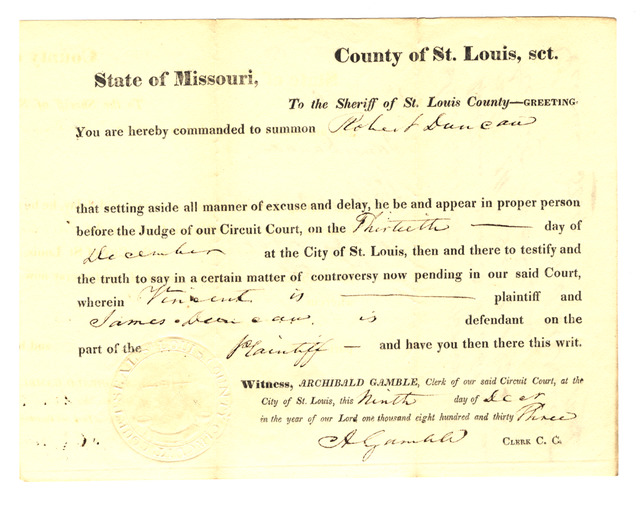 County of St. Louis, sct.
State of Missouri,
To the Sheriff of St. Louis County—GREETING
You are hereby commanded to summon Robert Duncan
that setting aside all manner of excuse and delay, he be and appear in proper person
before the Judge of our Circuit Court, on the Thirtieth — day of
December at the City of St. Louis, then and there to testify and
the truth to say in a certain matter of controversy now pending in our said Court,
wherein Vincent is — plaintiff and
James Duncan is defendant on the
part of the Plaintiff — and have you then there this writ.
Witness, ARCHIBALD GAMBLE, Clerk of our said Circuit Court, at the
City of St. Louis, this Ninth day of Decr
in the year of our Lord one thousand eight hundred and thirty Three
A Gamble CLERK C. C.